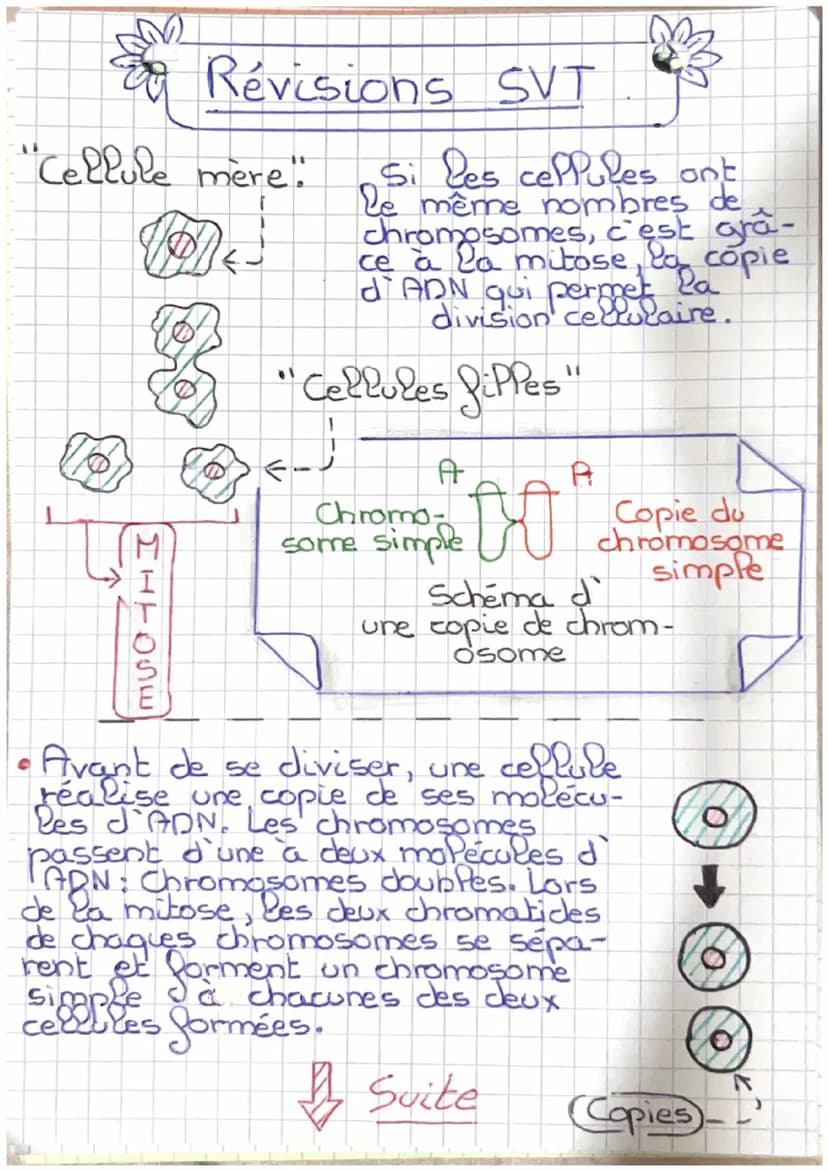 Révisions SVT
"Cellule mère":
Si les cellules ont
le même nombres de
chromosomes, c'est grâ-
ce à la mitose, la copie
d'ADN qui permet la
division cellulaire.
"Cellules filles"
A A
Chromo-
some simple
Copie du
chromosome
simple
Schéma d'
une copie de chrom-
osome
MITOSE
• Avant de se diviser, une cellule
réalise une copie de ses molécu-
les d'ADN. Les chromosomes
passent d'une à deux molécules d'
ADN : Chromosomes doubles. Lors
de la mitose, les deux chromatides
de chaques chromosomes se sépa-
rent et forment un chromosome
simple à chacunes des deux
cellules formées.
Suite
Copies